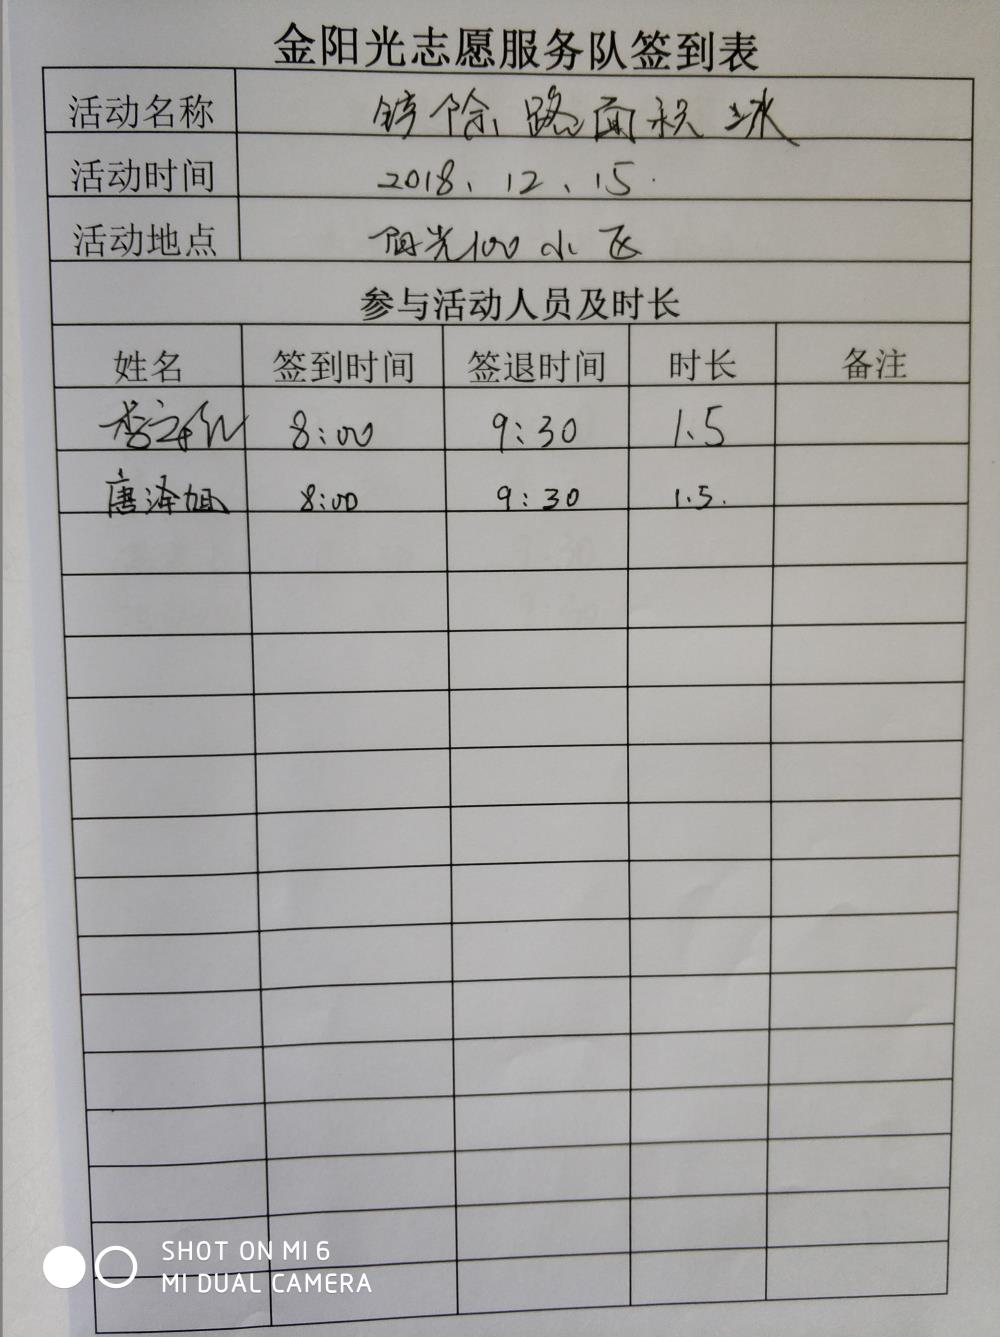 金阳光志愿服务队签到表
活动名称 铲除路面积冰
活动时间 2018、12、15.
活动地点 阳光100小区
参与活动人员及时长
姓名 签到时间 签退时间 时长 备注
李 8:00 9:30 1.5
唐泽旭 8:00 9:30 1.5.
SHOT ON MI 6
MI DUAL CAMERA